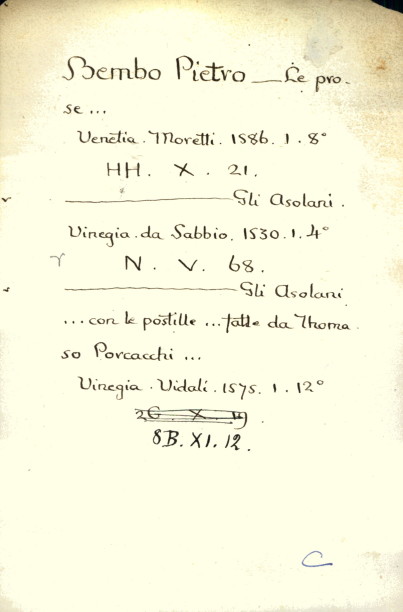 Bembo Pietro — Le pro-
se ...
Venetia. Moretti. 1586. 1. 8°
HH. X. 21.
— Gli Asolani.
Vinegia. da Sabbio. 1530. 1. 4°
N. V. 68.
— Gli Asolani
... con le postille ... fatte da Thoma
so Porcacchi ...
Vinegia. Vidali. 1575. 1. 12°
8B. XI. 12.
C